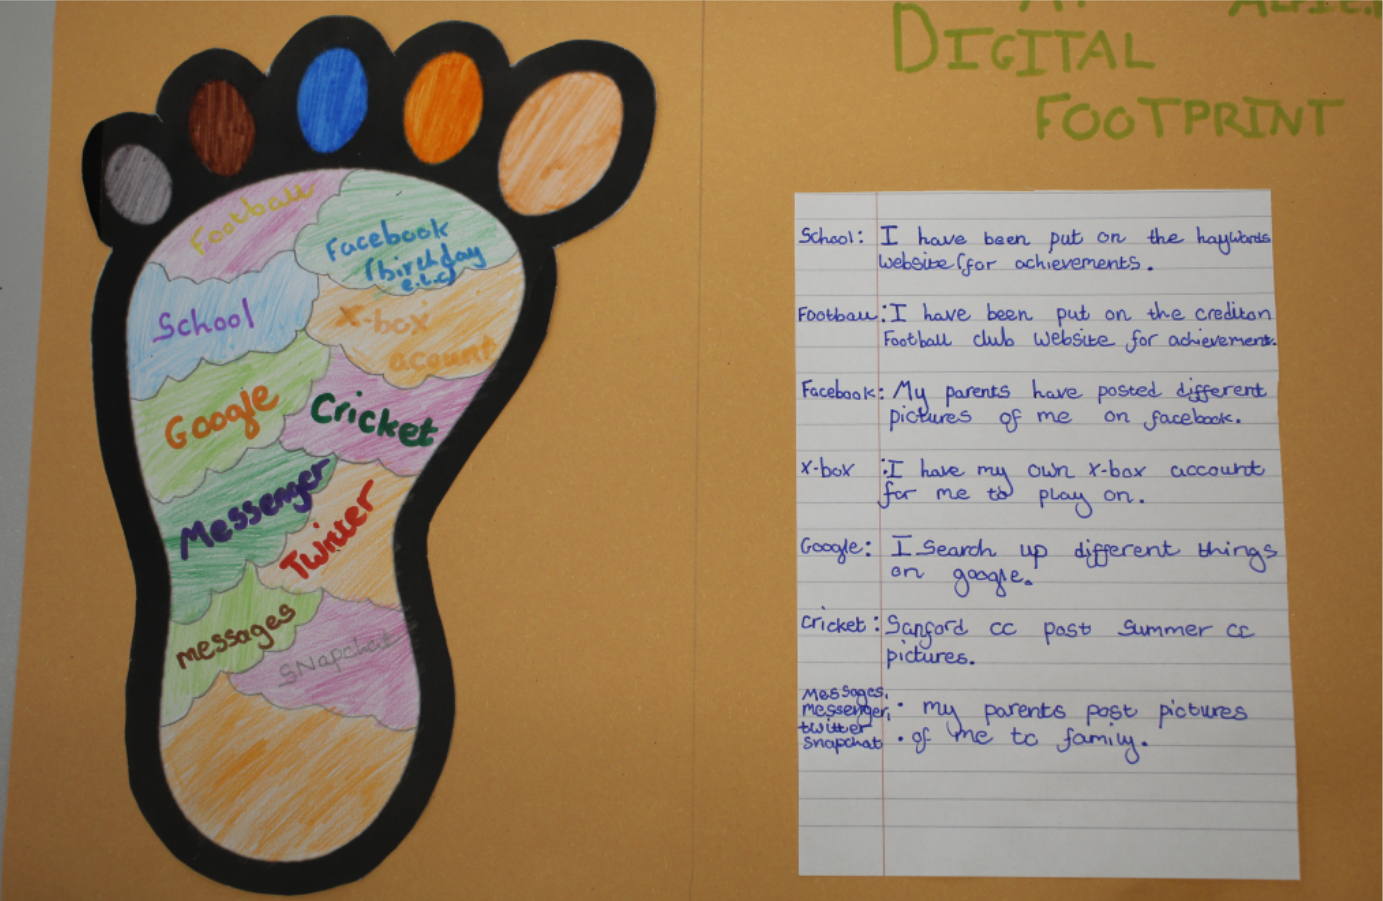 DIGITAL
FOOTPRINT
Football
Facebook
(birthday
e.t.c)
School
X-box
acount
Google
Cricket
Messenger
Twitter
messages
SNapchat
School: I have been put on the haywards
website (for achievements.
Football: I have been put on the crediton
Football club website for achievement.
Facebook: My parents have posted different
pictures of me on facebook.
X-box : I have my own x-box account
for me to play on.
Google: I Search up different things
on google.
Cricket: Sanford cc post Summer cc
pictures.
Messages,
messenger, : my parents post pictures
twitter
snapchat . of me to family.